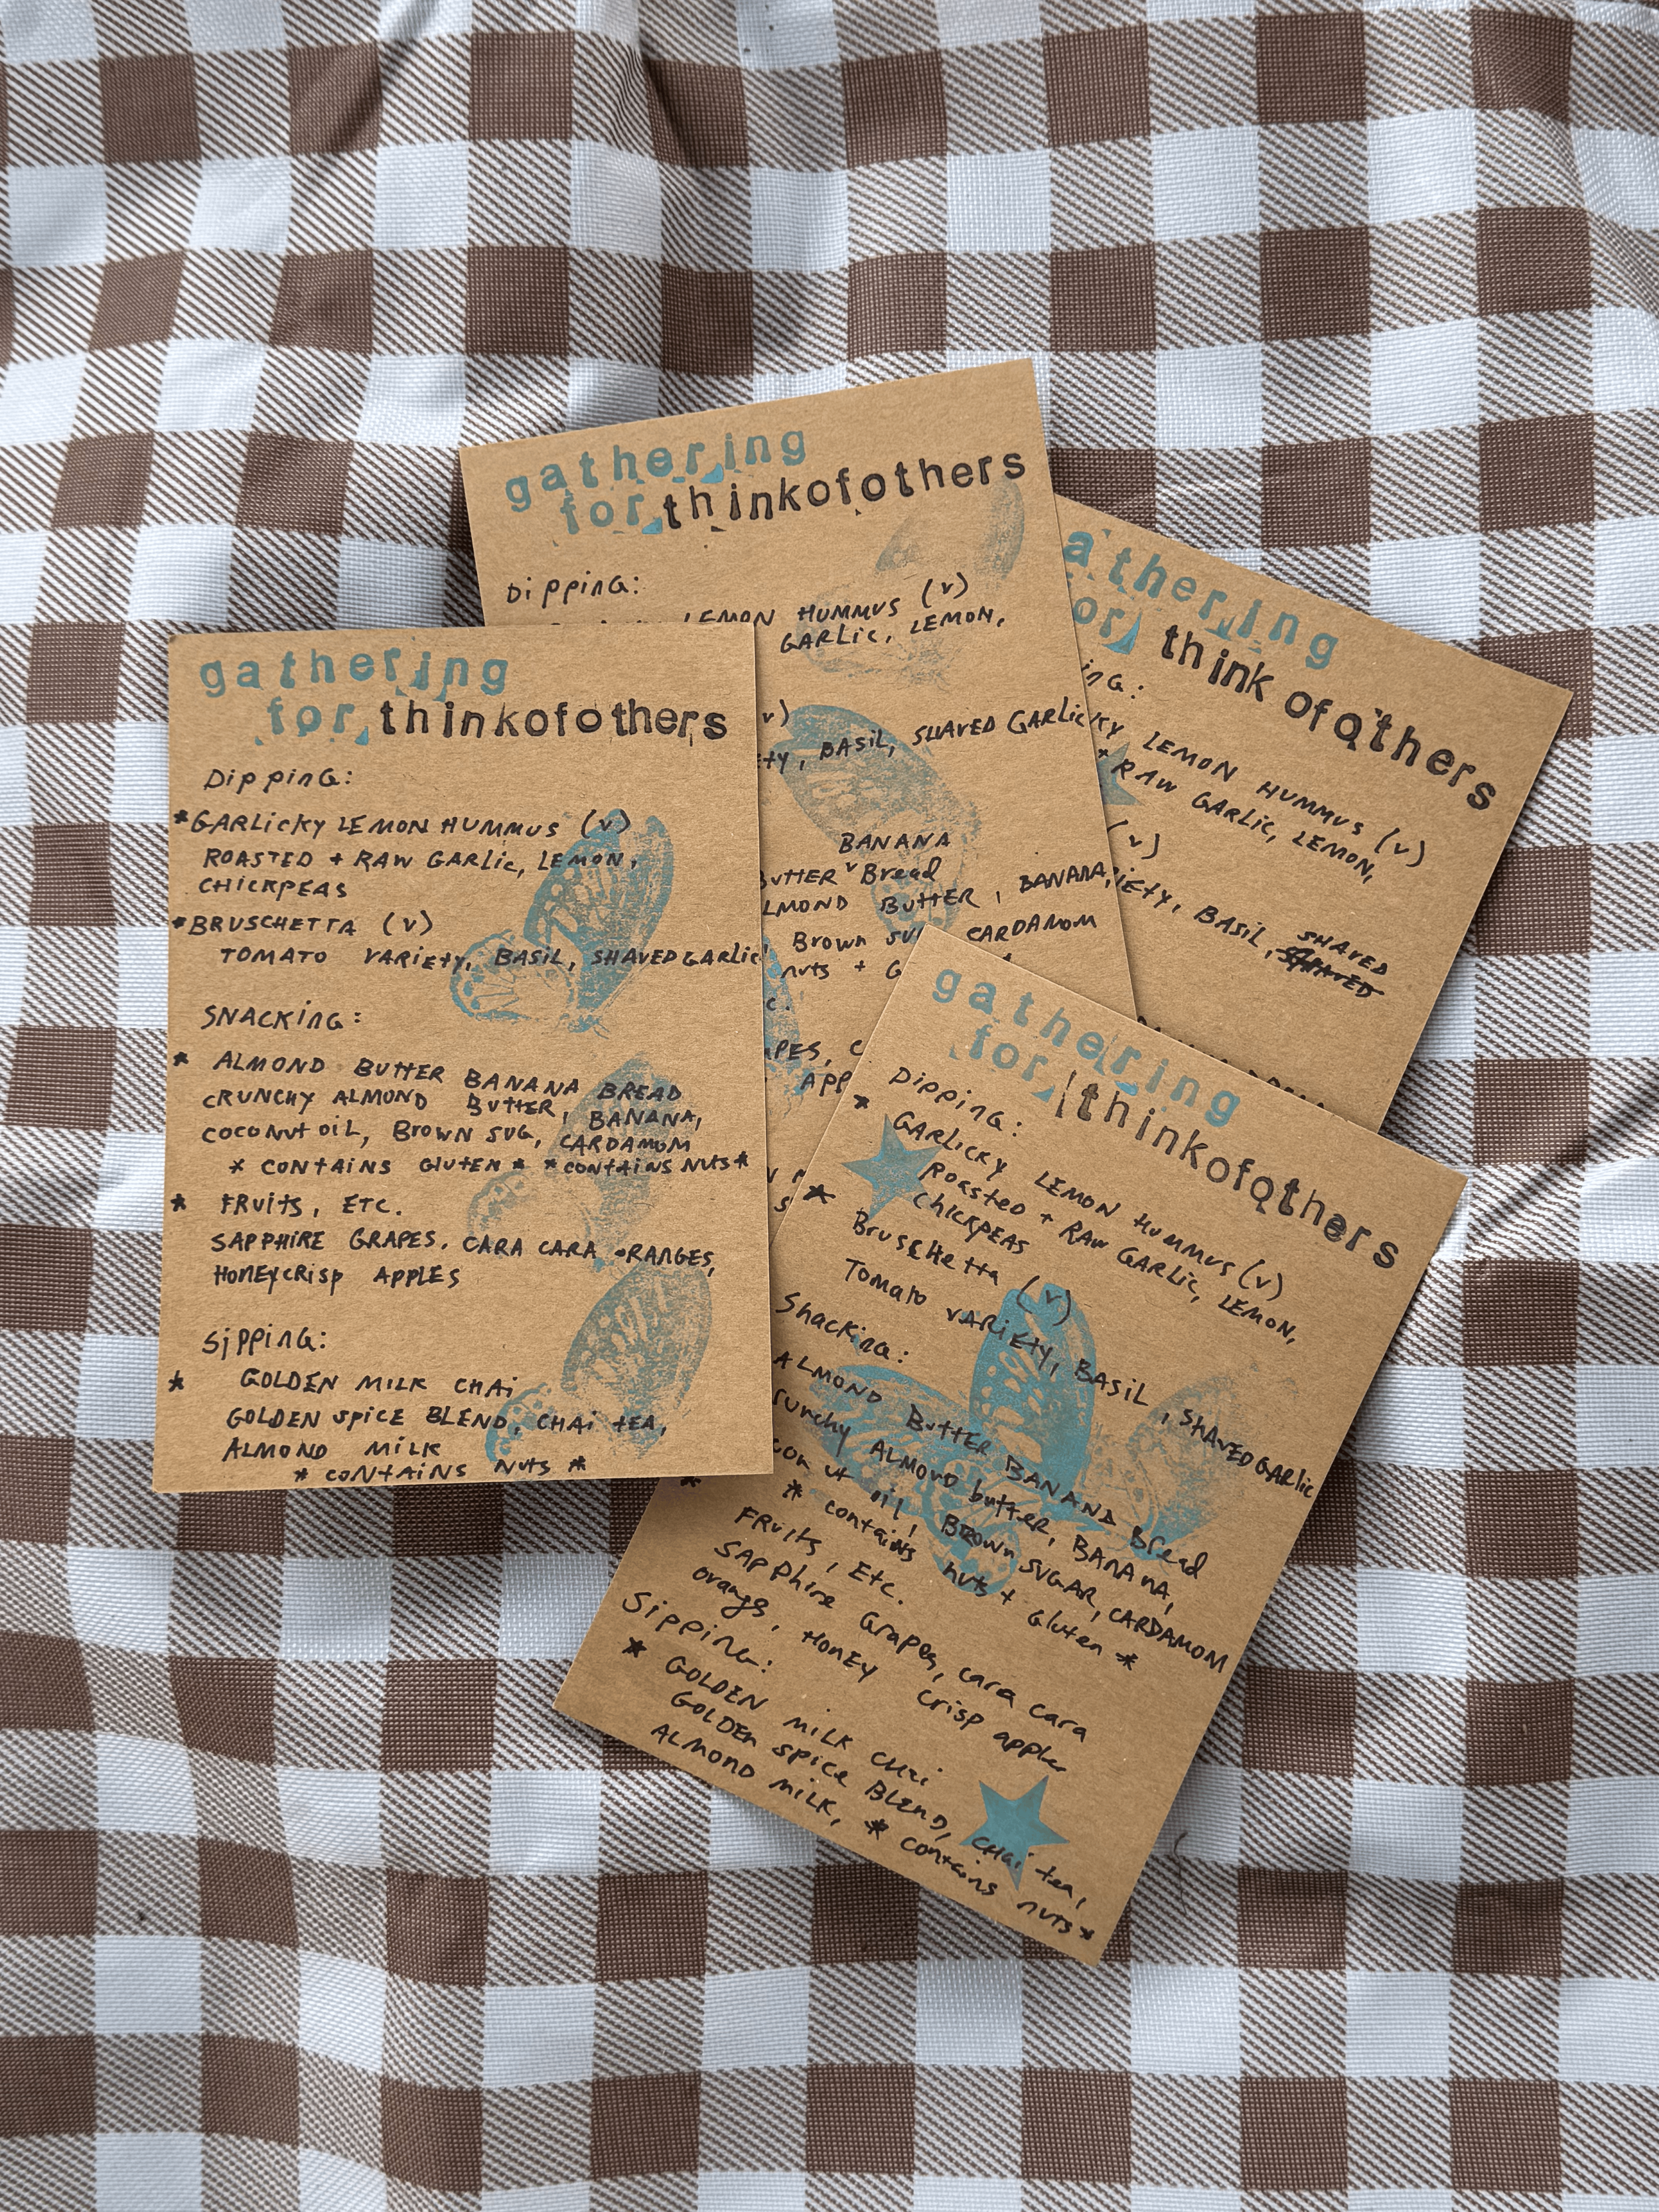 gathering
for thinkofothers
Dipping:
*GARLICKY LEMON HUMMUS (v)
ROASTED + RAW GARLIC, LEMON,
CHICKPEAS
*BRUSCHETTA (v)
TOMATO VARIETY, BASIL, SHAVED GARLIC
SNACKING:
* ALMOND BUTTER BANANA BREAD
CRUNCHY ALMOND BUTTER, BANANA,
COCONUT OIL, BROWN SUG, CARDAMOM
* CONTAINS GLUTEN * *CONTAINS NUTS*
* FRUITS, ETC.
SAPPHIRE GRAPES, CARA CARA ORANGES,
HONEYCRISP APPLES
Sipping:
* GOLDEN MILK CHAI
GOLDEN SPICE BLEND, CHAI TEA,
ALMOND MILK
* CONTAINS NUTS *
gathering
for thinkofothers
Dipping:
LEMON HUMMUS (v)
GARLIC, LEMON,
v)
BASIL, SHAVED GARLIC
BANANA
BUTTER Bread
ALMOND BUTTER, BANANA,
Brown CARDAMOM
nuts +
athering
or think ofothers
LEMON HUMMUS (v)
* RAW GARLIC, LEMON,
(v)
BASIL, SHAVED
gathering
for thinkofothers
Dipping:
* GARLICKY LEMON HUMMUS (v)
Roasted + RAW GARLIC, LEMON,
CHICKPEAS
* Bruschetta (v)
Tomato VARIETY, BASIL, SHAVED GARLIC
Snacking:
ALMOND Butter BANANA Bread
crunchy ALMOND butter, BANANA,
oil, BROWN SUGAR, CARDAMOM
* contains nuts + Gluten *
FRuits, Etc.
SAPPhire Grapes, cara cara
orange, HONEY crisp apples
Sipping:
* GOLDEN MILK CHAI
GOLDEN SPICE BLEND, CHAI tea,
ALMOND MILK, * contains nuts *